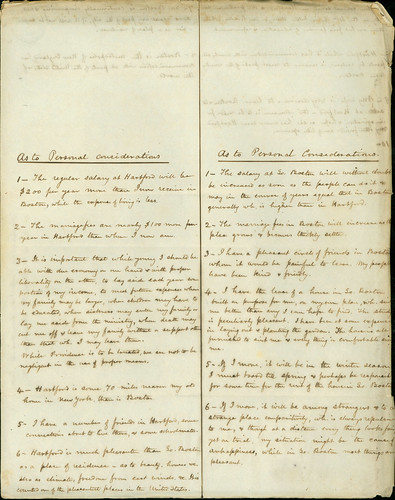 As to Personal considerations
1 – The regular salary at Hartford will be
$200 per year more than I now receive in
Boston, while the expense of living is less.
2 – The marriage fees are nearly $100 more per
year in Hartford than where I now am.
3 – It is important that while young I should be
able with due economy on one hand & with proper
liberality on the other to lay aside each year some
portion of my income to meet future expenses when
my family may be large, when children may have to
be educated, when sickness may enter my family or
lay me aside from the ministry, when death may
cut me off & leave my family without a support other
than that wh. I may leave them.
While Providence is to be trusted, we are not to be
negligent in the use of proper means.
4 – Hartford is some 70 miles nearer my old
home in New York, than is Boston.
5 – I have a number of friends in Hartford, some
connections about to live there, & some schoolmates.
6 – Hartford is much pleasanter than So. Boston
as a place of residence – as to beauty, houses &c
also as climate, freedom from east winds &c. It is
counted one of the pleasantest places in the United States.
As to Personal Considerations.
1 – The salary at So. Boston will without doubt
be increased as soon as the people can do it &
may in the course of years equal that in Boston
generally wh. is higher than in Hartford.
2 – The marriage fees in Boston will increase as the
place grows & becomes thickly settled.
3 – I have a pleasant circle of friends in Boston
whom it would be painful to leave. My people
have been kind & friendly.
4 – I have the lease of a house in So. Boston
built on purpose for me, on my own plan, wh. suits
me better than any I can hope to find. The situation
is exceedingly pleasant. I have been at some expense
in laying out & planting the garden. The house is all
furnished to suit me & every thing is comfortable about
me.
5 – If I move, it will be in the winter season.
I must board till spring & perhaps be responsible
for some time for the rent of the house in So. Boston
6 – If I move, it will be among strangers & to a
strange place comparatively, wh. is always repulsive
to me, & though at a distance every thing looks fair,
yet on trial, my situation might be the cause of
unhappiness, while in So. Boston most things are
pleasant.